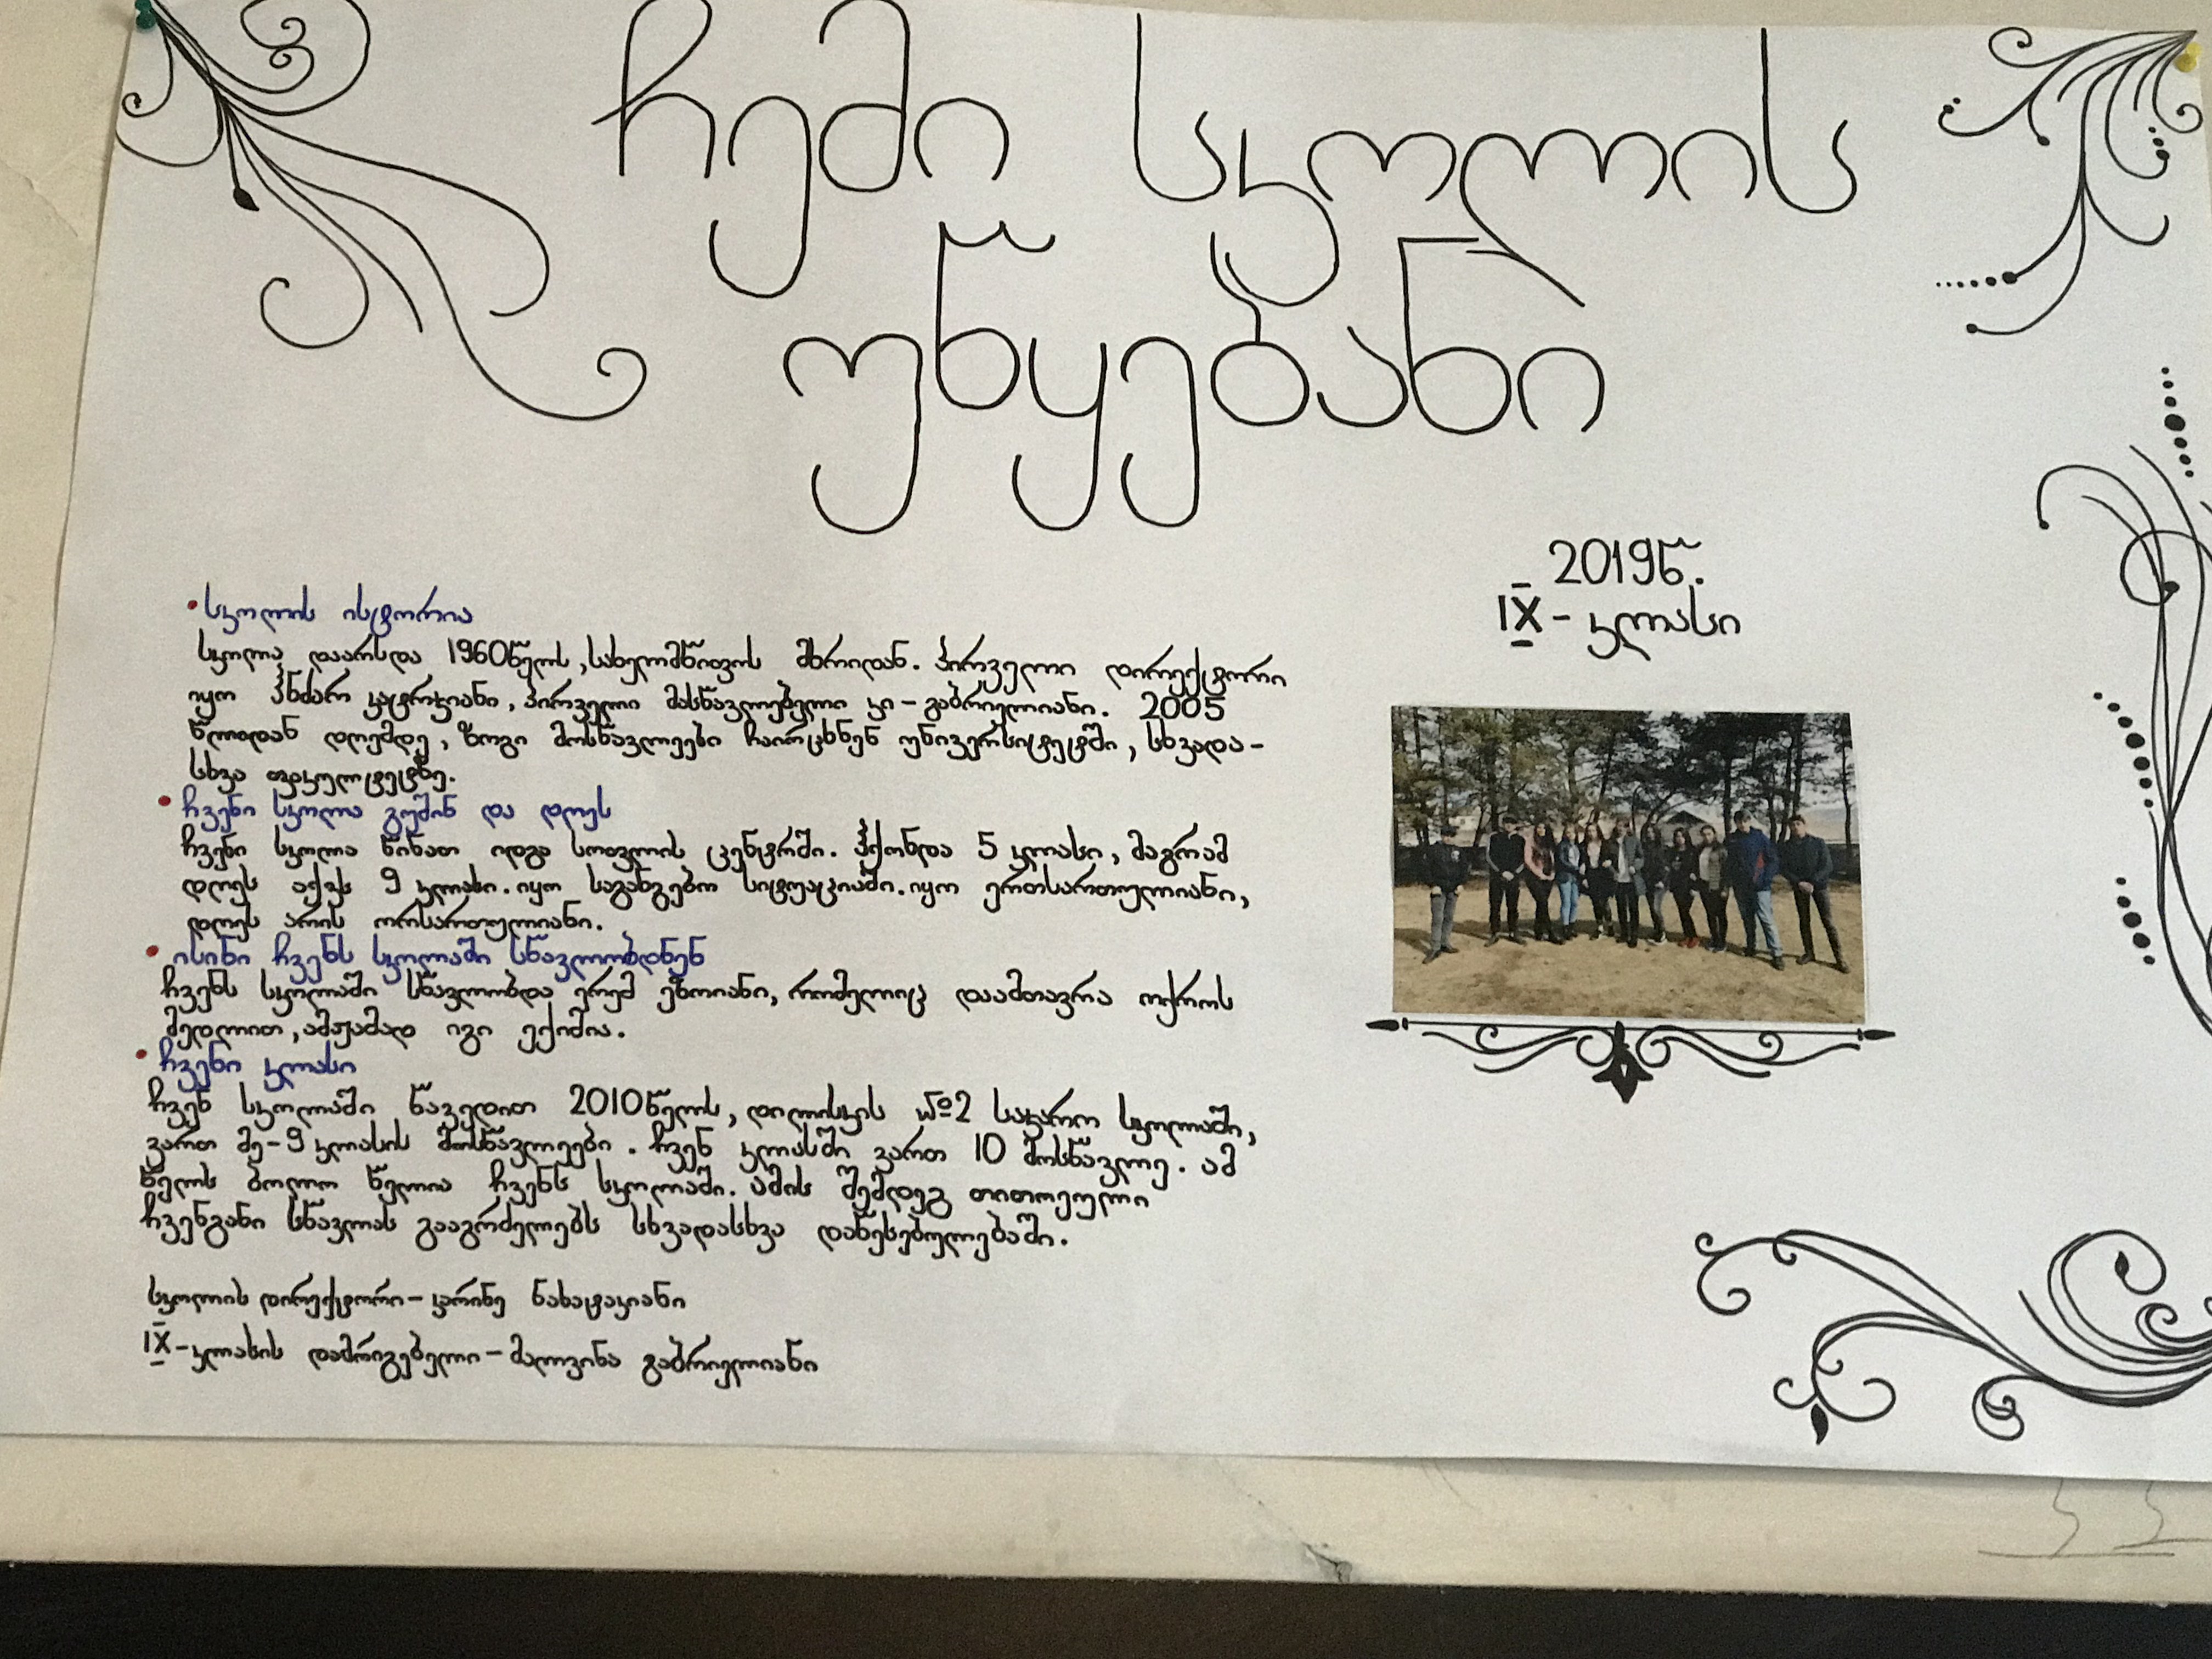 ჩემი სკოლის
უწყებანი
2019წ.
IX - კლასი
• სკოლის ისტორია
სკოლა დაარსდა 1960წელს, სახელმწიფოს მხრიდან. პირველი დირექტორი
იყო ჰნძარ კატრჯიანი, პირველი მასწავლებელი კი - გაბრიელიანი. 2005
წლიდან დღემდე, ზოგი მოსწავლეები ჩაირცხნენ უნივერსიტეტში, სხვადა-
სხვა ფაკულტეტზე.
• ჩვენი სკოლა გუშინ და დღეს
ჩვენი სკოლა წინათ იდგა სოფლის ცენტრში. ჰქონდა 5 კლასი, მაგრამ
დღეს აქვს 9 კლასი. იყო საგანგებო სიტუაციაში. იყო ერთსართულიანი,
დღეს არის ორსართულიანი.
• ისინი ჩვენს სკოლაში სწავლობდნენ
ჩვენს სკოლაში სწავლობდა ერემ ენოიანი, რომელიც დაამთავრა ოქროს
მედლით, ამჟამად იგი ექიმია.
• ჩვენი კლასი
ჩვენ სკოლაში წავედით 2010წელს, დილისკის №2 საჯარო სკოლაში,
ვართ მე-9 კლასის მოსწავლეები. ჩვენ კლასში ვართ 10 მოსწავლე. ამ
წელს ბოლო წელია ჩვენს სკოლაში. ამის შემდეგ თითოეული
ჩვენგანი სწავლას გააგრძელებს სხვადასხვა დაწესებულებაში.
სკოლის დირექტორი - კარინე ნახატაკიანი
IX - კლასის დამრიგებელი - მალვინა გაბრიელიანი